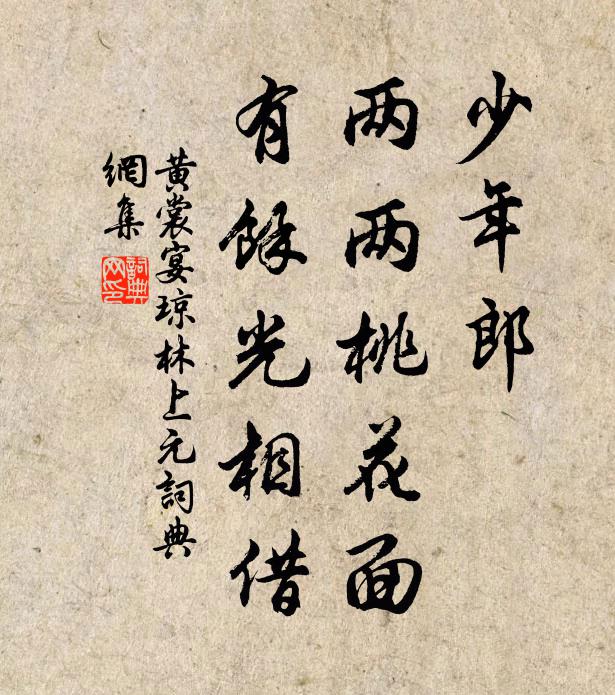 少年郎
两两桃花面
有餘光相借
黄裳宴琼林上元詞典
網集
詞典
网印